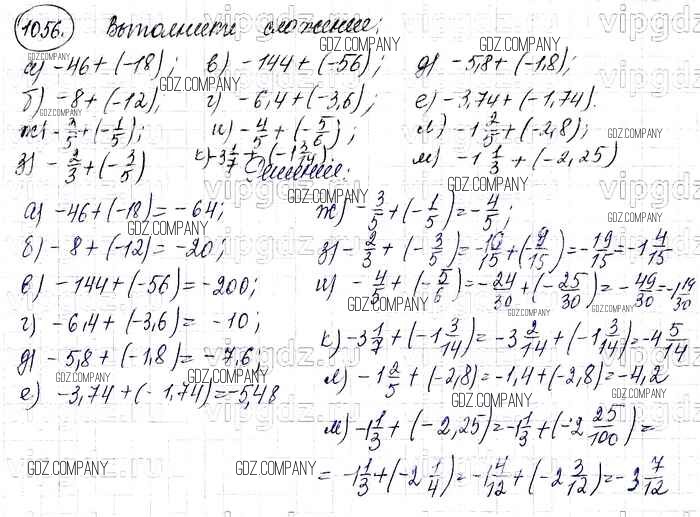 1056. Выполните сложение:
а) -46+(-18); в) -144+(-56); д) -5,8+(-1,8);
б) -8+(-12); г) -6,4+(-3,6); е) -3,74+(-1,74).
ж) -3/5+(-1/5); и) -4/5+(-5/6); л) -1 2/5+(-2,8);
з) -2/3+(-3/5) к) -3 1/7+(-1 3/14); м) -1 1/3+(-2,25)
Решение:
а) -46+(-18)=-64;
б) -8+(-12)=-20;
в) -144+(-56)=-200;
г) -6,4+(-3,6)=-10;
д) -5,8+(-1,8)=-7,6;
е) -3,74+(-1,74)=-5,48
ж) -3/5+(-1/5)=-4/5;
з) -2/3+(-3/5)=-10/15+(-9/15)=-19/15=-1 4/15
и) -4/5+(-5/6)=-24/30+(-25/30)=-49/30=-1 19/30
к) -3 1/7+(-1 3/14)=-3 2/14+(-1 3/14)=-4 5/14
л) -1 2/5+(-2,8)=-1,4+(-2,8)=-4,2
м) -1 1/3+(-2,25)=-1 1/3+(-2 25/100)=
=-1 1/3+(-2 1/4)=-1 4/12+(-2 3/12)=-3 7/12
GDZ.COMPANY
vipgdz.ru